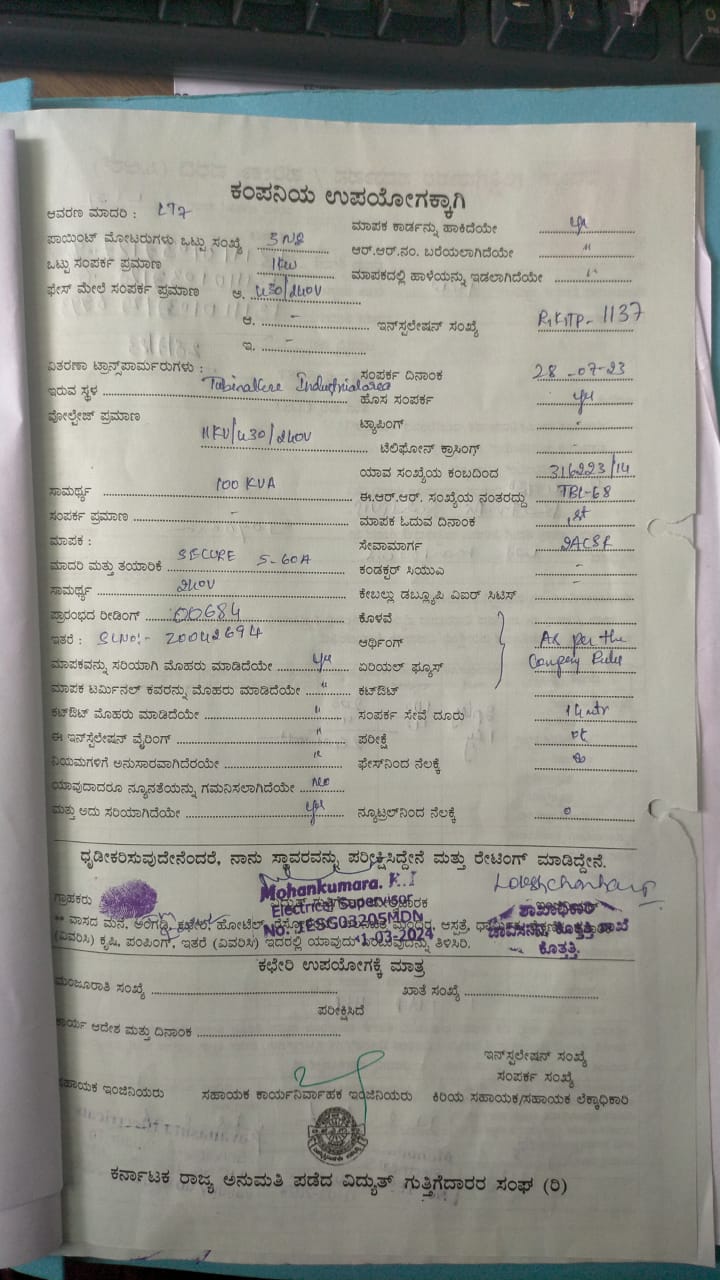 ಕಂಪನಿಯ ಉಪಯೋಗಕ್ಕಾಗಿ
ಆವರಣ ಮಾದರಿ : LT7
ಮಾಪಕ ಕಾರ್ಡನ್ನು ಹಾಕಿದೆಯೇ yes
ಪಾಯಿಂಟ್ ಮೋಟರುಗಳು ಒಟ್ಟು ಸಂಖ್ಯೆ
ಆರ್.ಆರ್.ನಂ. ಬರೆಯಲಾಗಿದೆಯೇ "
ಒಟ್ಟು ಸಂಪರ್ಕ ಪ್ರಮಾಣ 1KW
ಮಾಪಕದಲ್ಲಿ ಹಾಳೆಯನ್ನು ಇಡಲಾಗಿದೆಯೇ "
ಫೇಸ್ ಮೇಲೆ ಸಂಪರ್ಕ ಪ್ರಮಾಣ ಅ. 430/240V
ಆ. - ಇನ್‌ಸ್ಟಲೇಷನ್ ಸಂಖ್ಯೆ 1137
ಇ. -
ವಿತರಣಾ ಟ್ರಾನ್ಸ್‌ಫಾರ್ಮರುಗಳು :
ಸಂಪರ್ಕ ದಿನಾಂಕ 28-07-23
ಇರುವ ಸ್ಥಳ Tubinakere Industrial area
ಹೊಸ ಸಂಪರ್ಕ yes
ವೋಲ್ಟೇಜ್ ಪ್ರಮಾಣ 11KV/430/240V
ಟ್ಯಾಪಿಂಗ್ -
ಟೆಲಿಫೋನ್ ಕ್ರಾಸಿಂಗ್ -
ಯಾವ ಸಂಖ್ಯೆಯ ಕಂಬದಿಂದ 316223/14
ಸಾಮರ್ಥ್ಯ 100 KVA
ಈ.ಆರ್.ಆರ್. ಸಂಖ್ಯೆಯ ನಂತರದ್ದು TBL-68
ಸಂಪರ್ಕ ಪ್ರಮಾಣ -
ಮಾಪಕ ಓದುವ ದಿನಾಂಕ 1st
ಮಾಪಕ :
ಸೇವಾಮಾರ್ಗ 2ACSR
ಮಾದರಿ ಮತ್ತು ತಯಾರಿಕೆ SECURE 5-60A
ಕಂಡಕ್ಟರ್ ಸಿಯುಎ -
ಸಾಮರ್ಥ್ಯ 240V
ಕೇಬಲ್ಲು ಡಬ್ಲ್ಯೂಪಿ ವಿಐಆರ್ ಸಿಟಿಸ್ -
ಪ್ರಾರಂಭದ ರೀಡಿಂಗ್ 00684
ಕೊಳವೆ
ಇತರೆ : SLNo:- 20042694
ಅರ್ಥಿಂಗ್ As per the
ಮಾಪಕವನ್ನು ಸರಿಯಾಗಿ ಮೊಹರು ಮಾಡಿದೆಯೇ yes
ಏರಿಯಲ್ ಫ್ಯೂಸ್ Company Rules
ಮಾಪಕ ಟರ್ಮಿನಲ್ ಕವರನ್ನು ಮೊಹರು ಮಾಡಿದೆಯೇ "
ಕಟ್‌ಔಟ್
ಕಟ್‌ಔಟ್ ಮೊಹರು ಮಾಡಿದೆಯೇ "
ಸಂಪರ್ಕ ಸೇವೆ ದೂರು 14mtr
ಈ ಇನ್‌ಸ್ಟಲೇಷನ್ ವೈರಿಂಗ್ "
ಪರೀಕ್ಷೆ ok
ನಿಯಮಗಳಿಗೆ ಅನುಸಾರವಾಗಿದೆರಯೇ "
ಫೇಸ್‌ನಿಂದ ನೆಲಕ್ಕೆ
ಯಾವುದಾದರೂ ನ್ಯೂನತೆಯನ್ನು ಗಮನಿಸಲಾಗಿದೆಯೇ No
ಮತ್ತು ಅದು ಸರಿಯಾಗಿದೆಯೇ yes
ನ್ಯೂಟ್ರಲ್‌ನಿಂದ ನೆಲಕ್ಕೆ 0
ಧೃಡೀಕರಿಸುವುದೇನೆಂದರೆ, ನಾನು ಸ್ಥಾವರವನ್ನು ಪರೀಕ್ಷಿಸಿದ್ದೇನೆ ಮತ್ತು ರೇಟಿಂಗ್ ಮಾಡಿದ್ದೇನೆ.
ಗ್ರಾಹಕರು
Mohankumara. K.J
Electrical Supervisor
No: 1ESG03205MDN
1-03-2024
ಶಾಖಾಧಿಕಾರಿ
ಚಾವಿಸನಿನಿ, ಕೊತ್ತತ್ತಿ ಶಾಖೆ
ಕೊತ್ತತ್ತಿ.
** ವಾಸದ ಮನೆ, ಅಂಗಡಿ, ಕಛೇರಿ, ಹೋಟೆಲ್, ಮಂದಿರ, ಆಸ್ಪತ್ರೆ,
(ವಿವರಿಸಿ) ಕೃಷಿ, ಪಂಪಿಂಗ್, ಇತರೆ (ವಿವರಿಸಿ) ಇದರಲ್ಲಿ ಯಾವುದು ತಿಳಿಸಿರಿ.
ಕಛೇರಿ ಉಪಯೋಗಕ್ಕೆ ಮಾತ್ರ
ಮಂಜೂರಾತಿ ಸಂಖ್ಯೆ
ಖಾತೆ ಸಂಖ್ಯೆ
ಪರೀಕ್ಷಿಸಿದೆ
ಕಾರ್ಯ ಆದೇಶ ಮತ್ತು ದಿನಾಂಕ
ಇನ್‌ಸ್ಟಲೇಷನ್ ಸಂಖ್ಯೆ
ಸಂಪರ್ಕ ಸಂಖ್ಯೆ
ಸಹಾಯಕ ಇಂಜಿನಿಯರು ಸಹಾಯಕ ಕಾರ್ಯನಿರ್ವಾಹಕ ಇಂಜಿನಿಯರು ಕಿರಿಯ ಸಹಾಯಕ/ಸಹಾಯಕ ಲೆಕ್ಕಾಧಿಕಾರಿ
ಕರ್ನಾಟಕ ರಾಜ್ಯ ಅನುಮತಿ ಪಡೆದ ವಿದ್ಯುತ್ ಗುತ್ತಿಗೆದಾರರ ಸಂಘ (ರಿ)